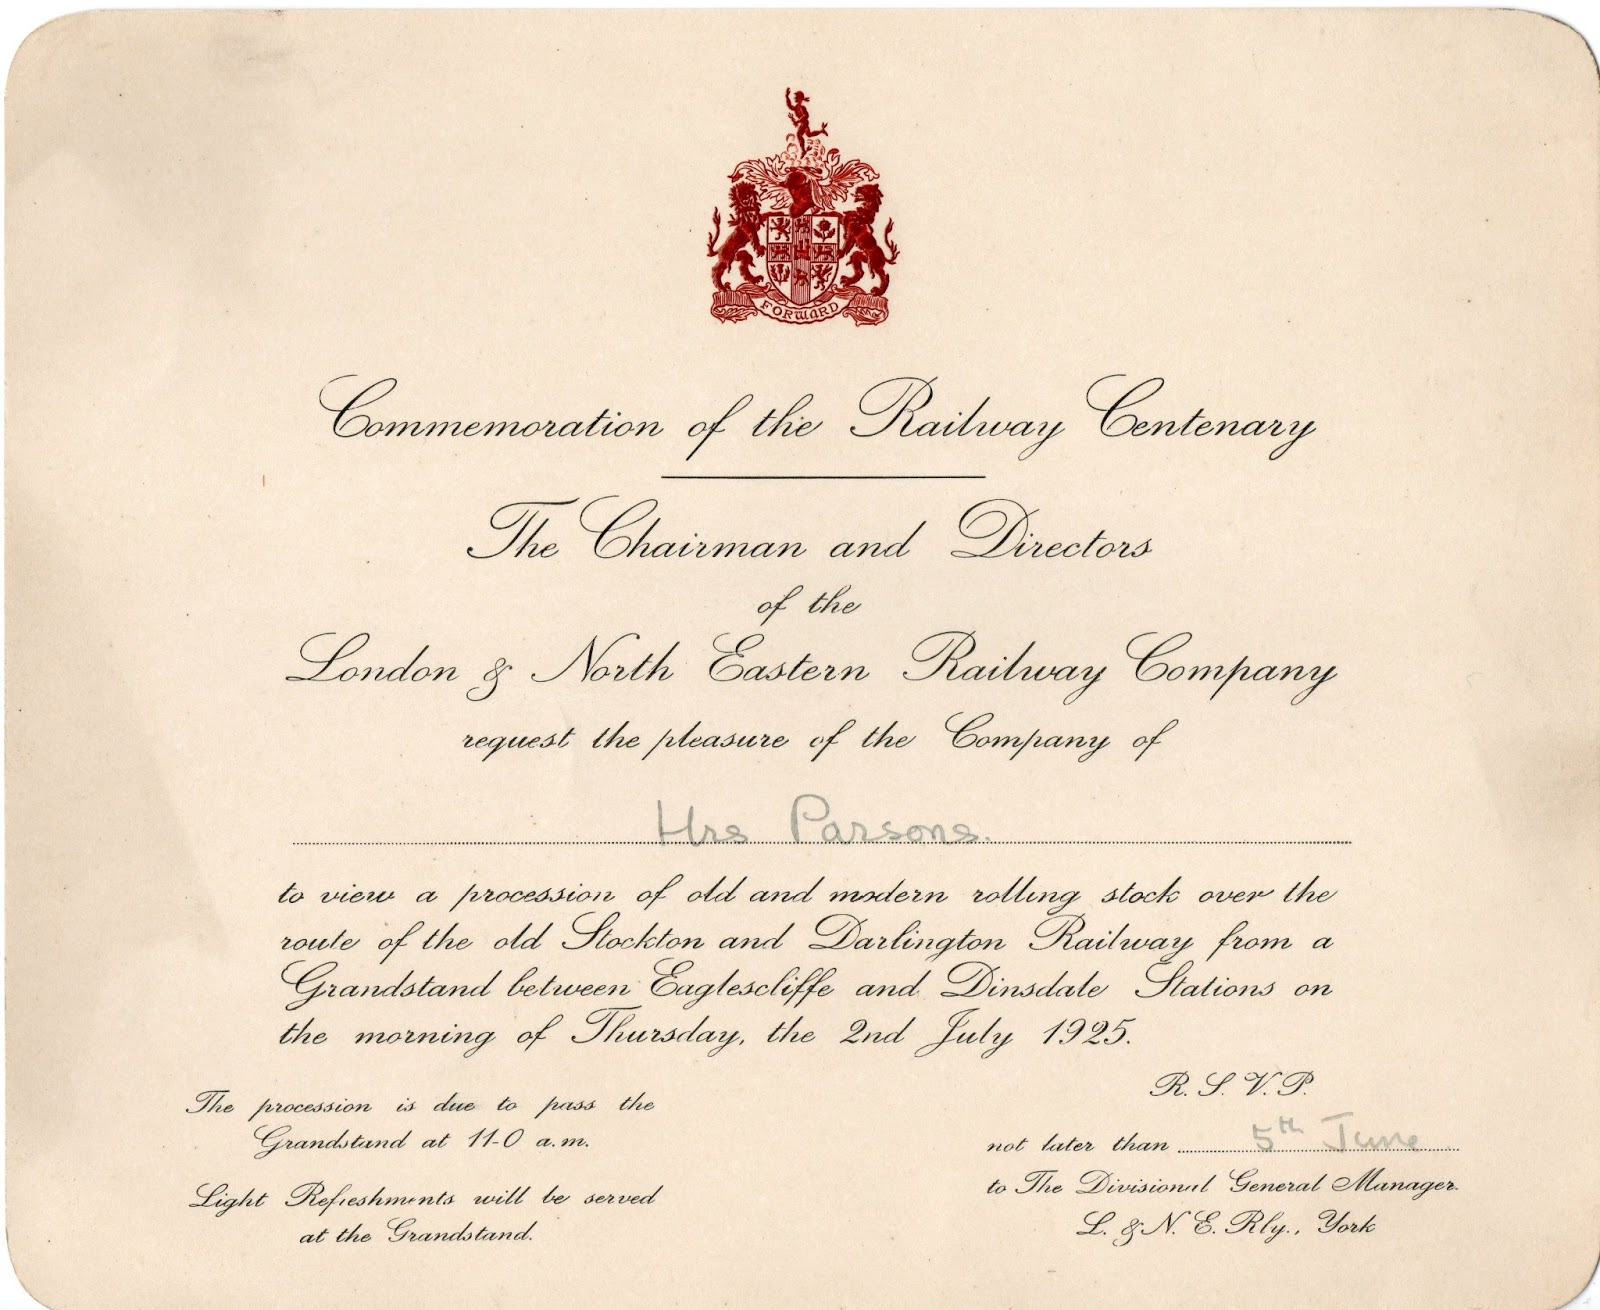 FORWARD
Commemoration of the Railway Centenary
The Chairman and Directors
of the
London & North Eastern Railway Company
request the pleasure of the Company of
Mrs Parsons.
to view a procession of old and modern rolling stock over the
route of the old Stockton and Darlington Railway from a
Grandstand between Eaglescliffe and Dinsdale Stations on
the morning of Thursday, the 2nd July 1925.
The procession is due to pass the
Grandstand at 11-0 a.m.
Light Refreshments will be served
at the Grandstand.
R. S. V. P.
not later than 5th June
to The Divisional General Manager.
L. & N. E. Rly., York